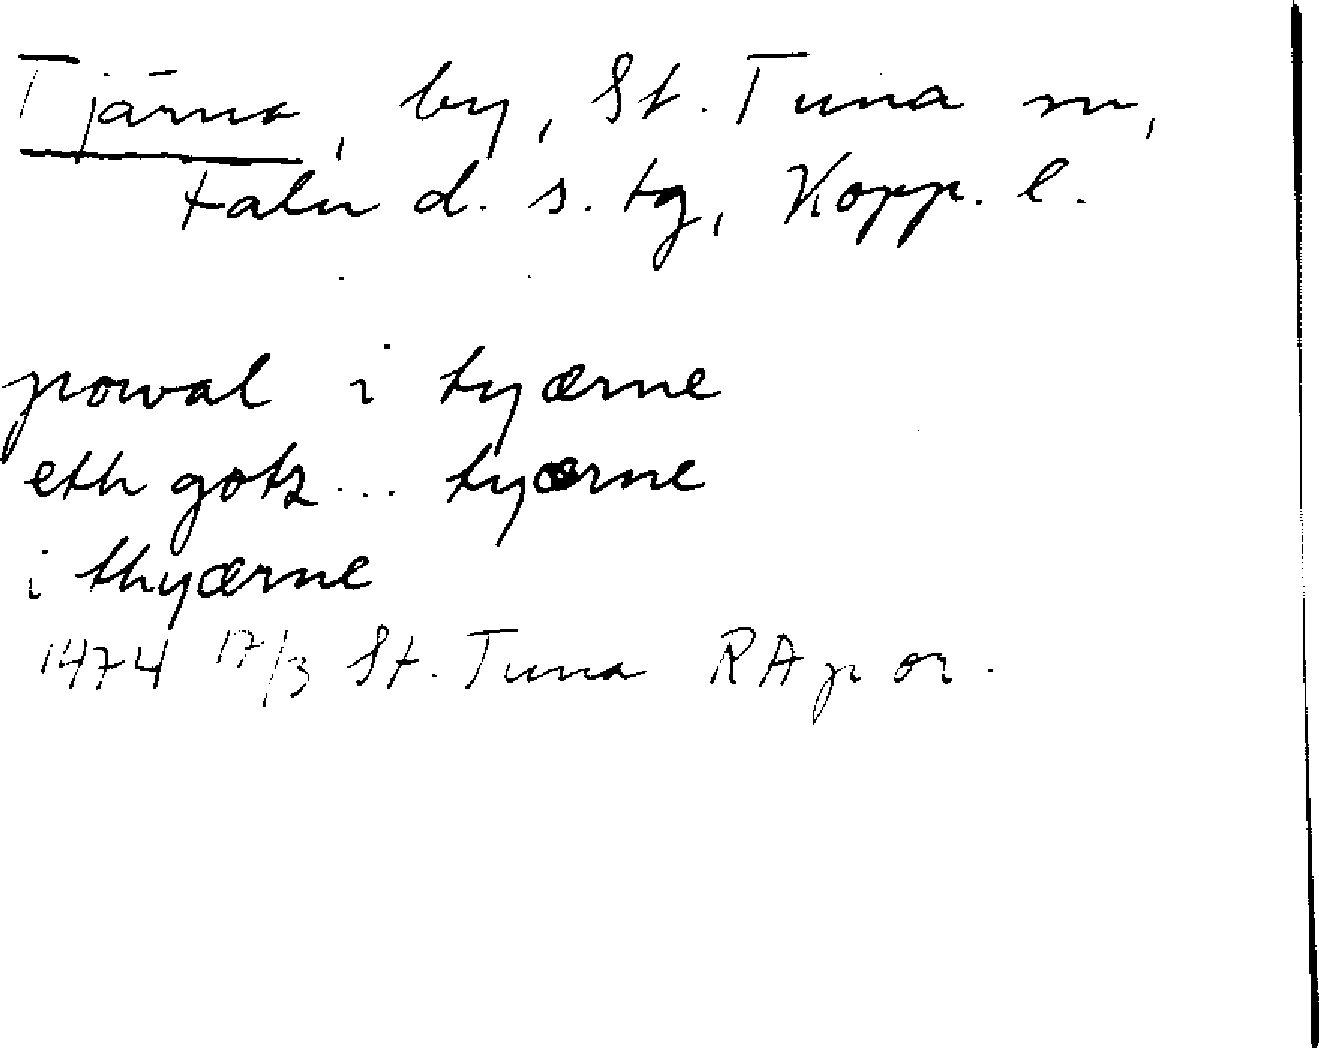 Tjärna, by, St. Tuna sn,
Falu d. s. tg, Kopp. l.
powal i tyærne
eth gotz ... tyærne
i thyærne
1474 17/3 St. Tuna RAp or.